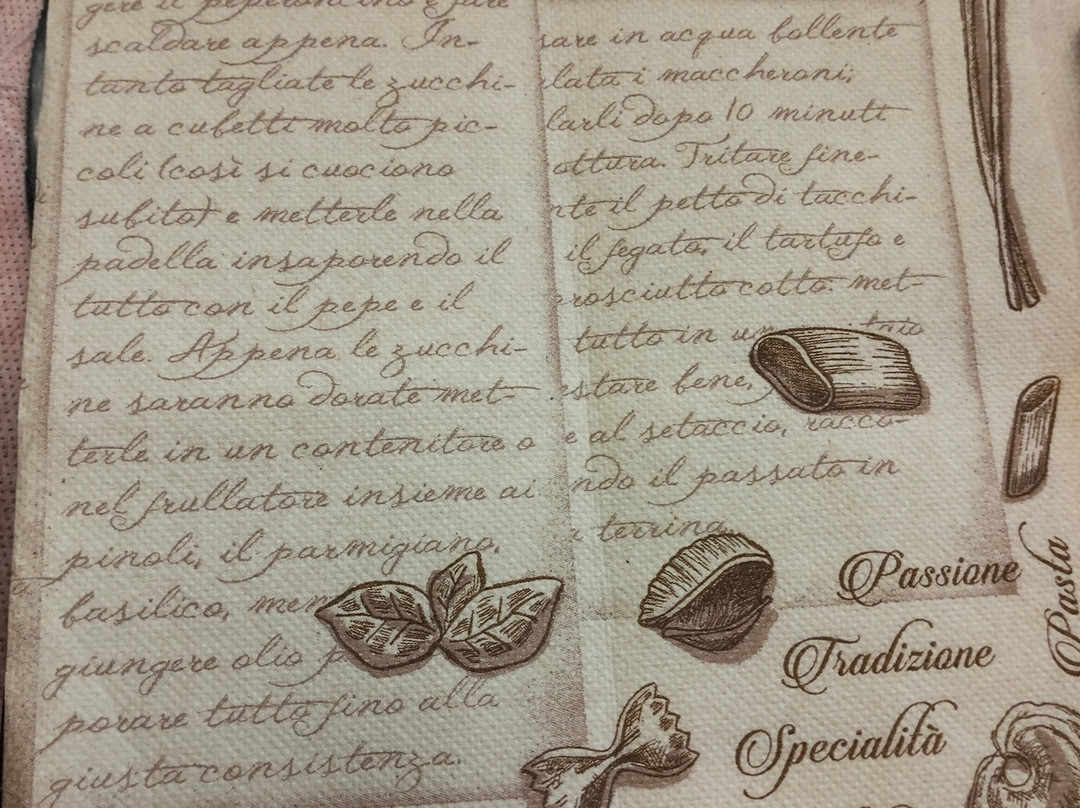 gere il peperoncino e fare
scaldare appena. In-
tanto tagliate le zucchi-
ne a cubetti molto pic-
coli (così si cuociono
subito) e metterle nella
padella insaporendo il
tutto con il pepe e il
sale. Appena le zucchi-
ne saranno dorate met-
terle in un contenitore o
nel frullatore insieme ai
pinoli, il parmigiano,
basilico,
giungere olio
porare tutto fino alla
giusta consistenza.
sare in acqua bollente
lata i maccheroni;
larli dopo 10 minuti
ottura. Tritare fine-
nte il petto di tacchi-
il fegato, il tartufo e
rosciutto cotto. met-
tutto in un
estare bene,
e al setaccio, racco-
ndo il passato in
a terrina.
Passione
Tradizione
Specialità
Pasta